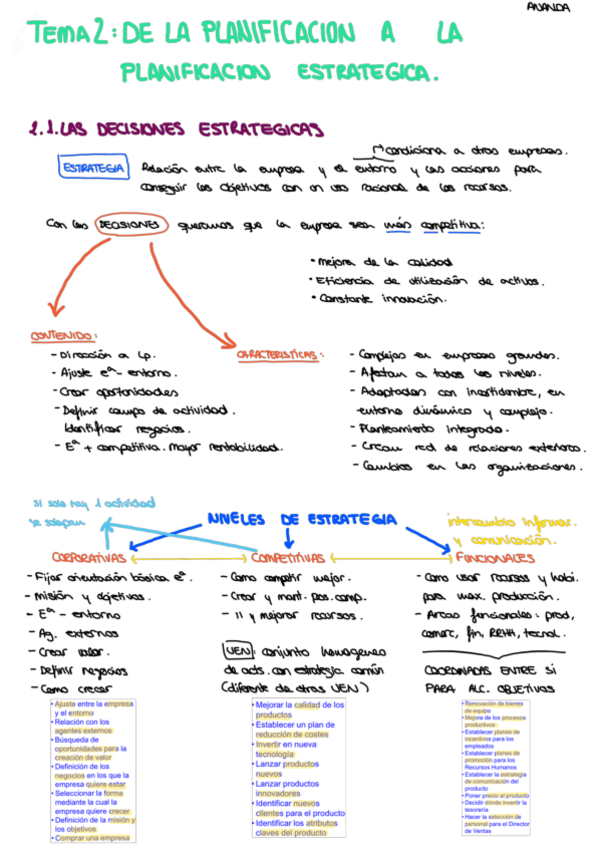 ANANDA
TEMA 2: DE LA PLANIFICACION A LA
PLANIFICACION ESTRATEGICA.
2.1. LAS DECISIONES ESTRATEGICAS
condiciona a otras empresas.
ESTRATEGIA Relación entre la empresa y el entorno y las acciones para
conseguir los objetivos con un uso racional de los recursos.
Con las DECISIONES queremos que la empresa sea más competitiva:
• Mejora de la calidad
• Eficiencia de utilización de activos.
• Constante innovación.
CONTENIDO:
- Dirección a Lp.
- Ajuste eª - entorno.
- Crear oportunidades
- Definir campo de actividad.
Identificar negocios.
- Eª + competitiva. Mayor rentabilidad.
CARACTERISTICAS:
- Complejas en empresas grandes.
- Afectan a todos los niveles.
- Adoptadas con incertidumbre, en
entorno dinámico y complejo.
- Planteamiento integrado.
- Crean red de relaciones exteriores.
- Cambios en las organizaciones.
si solo hay 1 actividad
se solapan
NIVELES DE ESTRATEGIA
intercambio informac.
y comunicación.
CORPORATIVAS
- Fijar orientación básica eª.
- Misión y objetivos.
- Eª - entorno
- Ag. externos
- Crear valor.
- Definir negocios
- Como crecer
• Ajuste entre la empresa
y el entorno
• Relación con los
agentes externos
• Búsqueda de
oportunidades para la
creación de valor
• Definición de los
negocios en los que la
empresa quiere estar
• Seleccionar la forma
mediante la cual la
empresa quiere crecer
• Definición de la misión y
los objetivos
• Comprar una empresa
COMPETITIVAS
- Como competir mejor.
- Crear y mant. pos. comp.
- 11 y mejorar recursos.
UEN: conjunto homogeneo
de acts. con estrategia común
(diferente de otras UEN)
• Mejorar la calidad de los
productos
• Establecer un plan de
reducción de costes
• Invertir en nueva
tecnología
• Lanzar productos
nuevos
• Lanzar productos
innovadores
• Identificar nuevos
clientes para el producto
• Identificar los atributos
claves del producto
FUNCIONALES
- Como usar recursos y habi.
para max. producción.
- Areas funcionales: prod,
comerc, fin, RRHH, tecnol.
COORDINADAS ENTRE SI
PARA ALC. OBJETIVOS
• Renovación de bienes
de equipo
• Mejora de los procesos
productivos
• Establecer planes de
incentivos para los
empleados
• Establecer planes de
promoción para los
Recursos Humanos
• Establecer la estrategia
de comunicación del
producto
• Poner precio al producto
• Decidir dónde invertir la
tesorería
• Hacer la selección de
personal para el Director
de Ventas